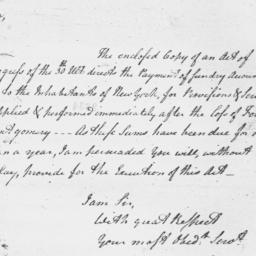 The enclosed Copy of an Act of
gress of the 30th Ult. directs the Payment of sundry Accoun
to the Inhabitants of New York, for Provisions & Serv
pplied & performed immediately after the Loss of For
ntgomery --- As these Sums have been due for o
n a year, I am persuaded You will, without
lay, provide for the Execution of this Act—
I am Sir,
With great Respect
Your most Obed.t Servt